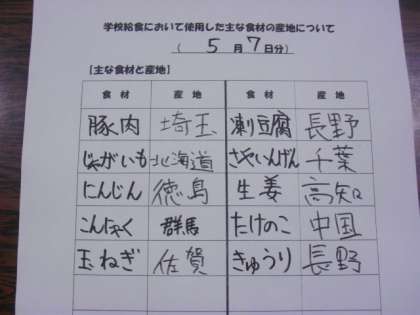 学校給食において使用した主な食材の産地について
( 5月7日分)
【主な食材と産地】
食材 産地 食材 産地
豚肉 埼玉 凍豆腐 長野
じゃがいも 北海道 さやいんげん 千葉
にんじん 徳島 生姜 高知
こんにゃく 群馬 たけのこ 中国
玉ねぎ 佐賀 きゅうり 長野